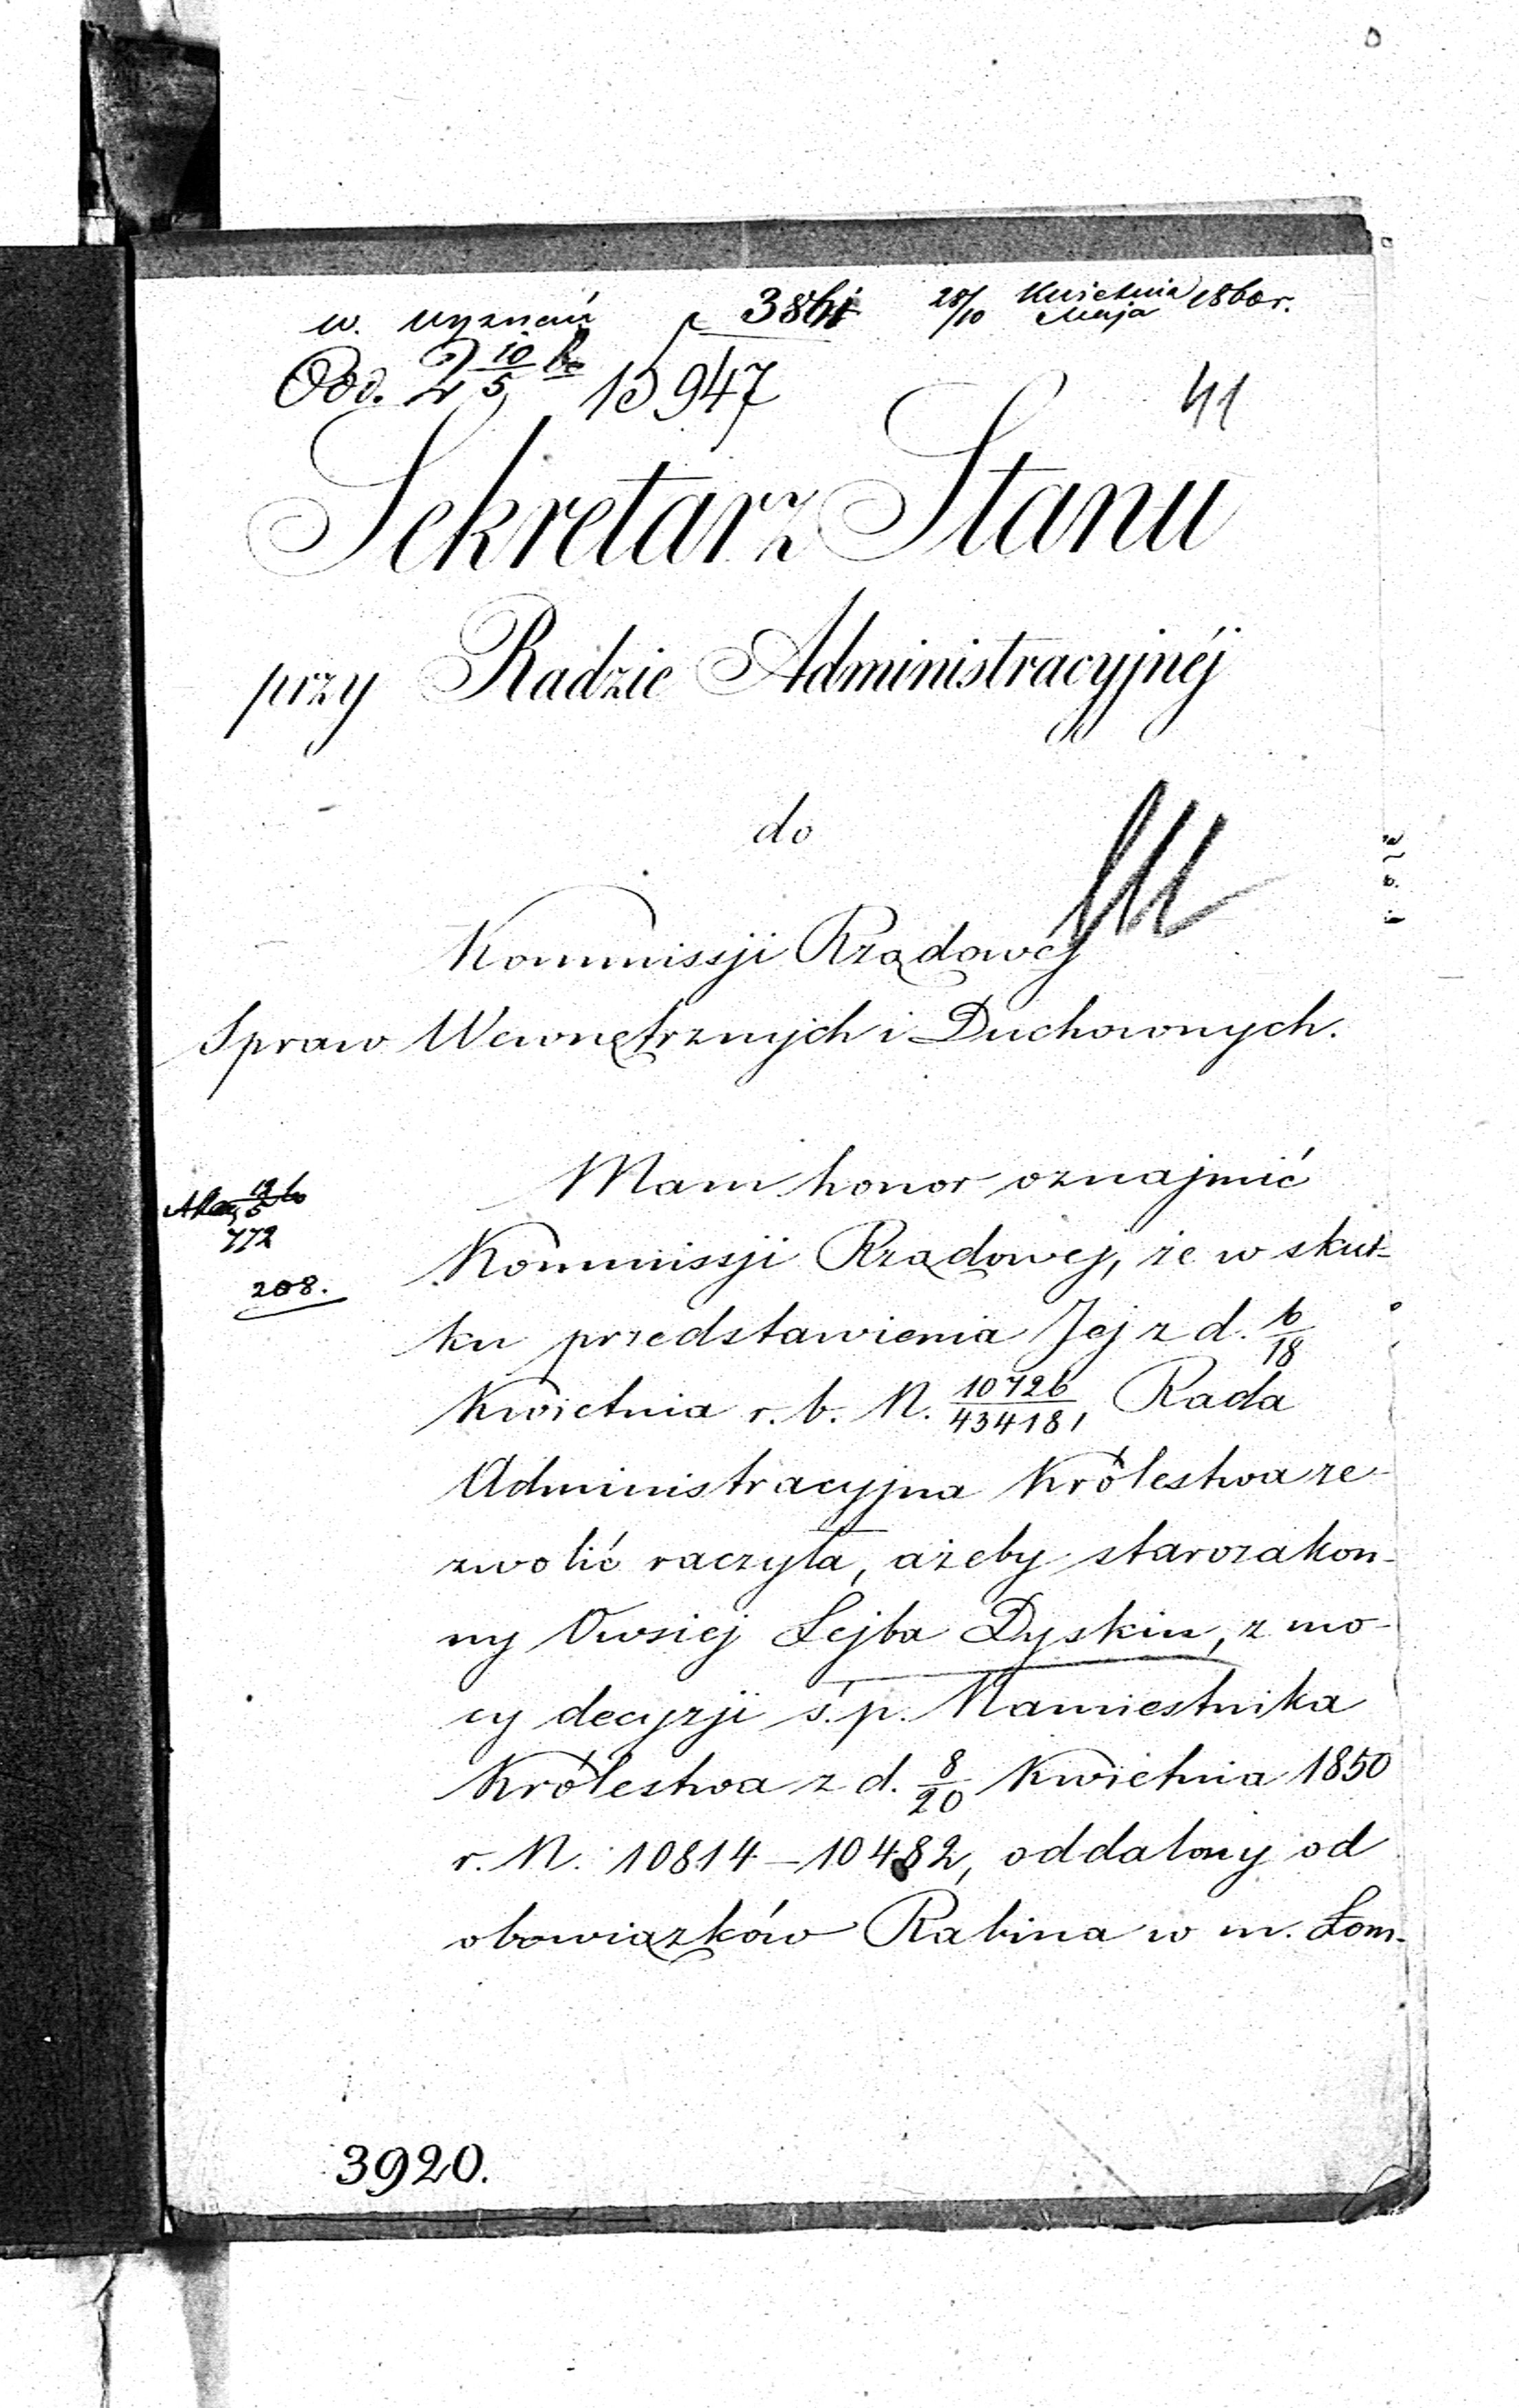 w. wyznań 28/10 Kwietnia Maja 1860 r.
Odd. 2 10/5 60 15947
41
Sekretarz Stanu
przy Radzie Administracyjnéj
do
Kommissji Rządowéj
Spraw Wewnętrznych i Duchownych.
Mam honor oznajmić
772
Kommissji Rządowej, że w skut-
208.
ku przedstawienia Jej z d. 6/18
Kwietnia r. b. N. 10726/434181, Rada
Administracyjna Królestwa ze-
zwolić raczyła, ażeby starozakon-
ny Owsiej Lejba Dyskin, z mo-
cy decyzji ś.p. Namiestnika
Królestwa z d. 8/20 Kwietnia 1850
r. N. 10814–10482, oddalony od
obowiązków Rabina w m. Łom-
3920.